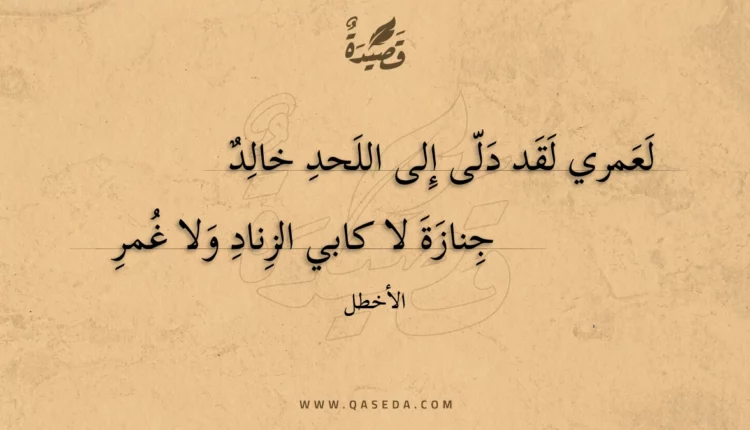 قَصِيدَةٌ
لَعَمري لَقَد دَلّى إِلى اللَحدِ خالِدٌ
جِنازَةَ لا كابي الزِنادِ وَلا غُمرِ
الأخطل
WWW.QASEDA.COM